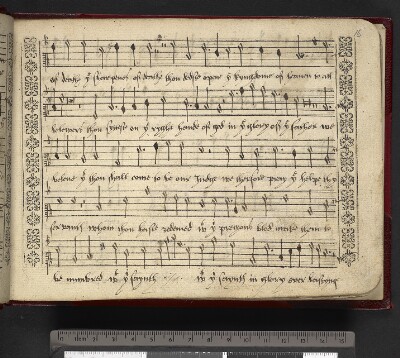 of deathe yͤ sharpenes of deathe thou dedest open yͤ kyngdome of heaven to all
belevers thou syttest on yͤ ryght hande of god in yͤ glory off yͤ father we
beleve yͭ thou shalt come to be our Judge we therfore pray yͤ helpe thy
servants whom thou haste redemed wͭ yͤ precyous blod make them to
be numbered wͭ yͤ saynts wͭ yͤ saynts in glory ever lastyng